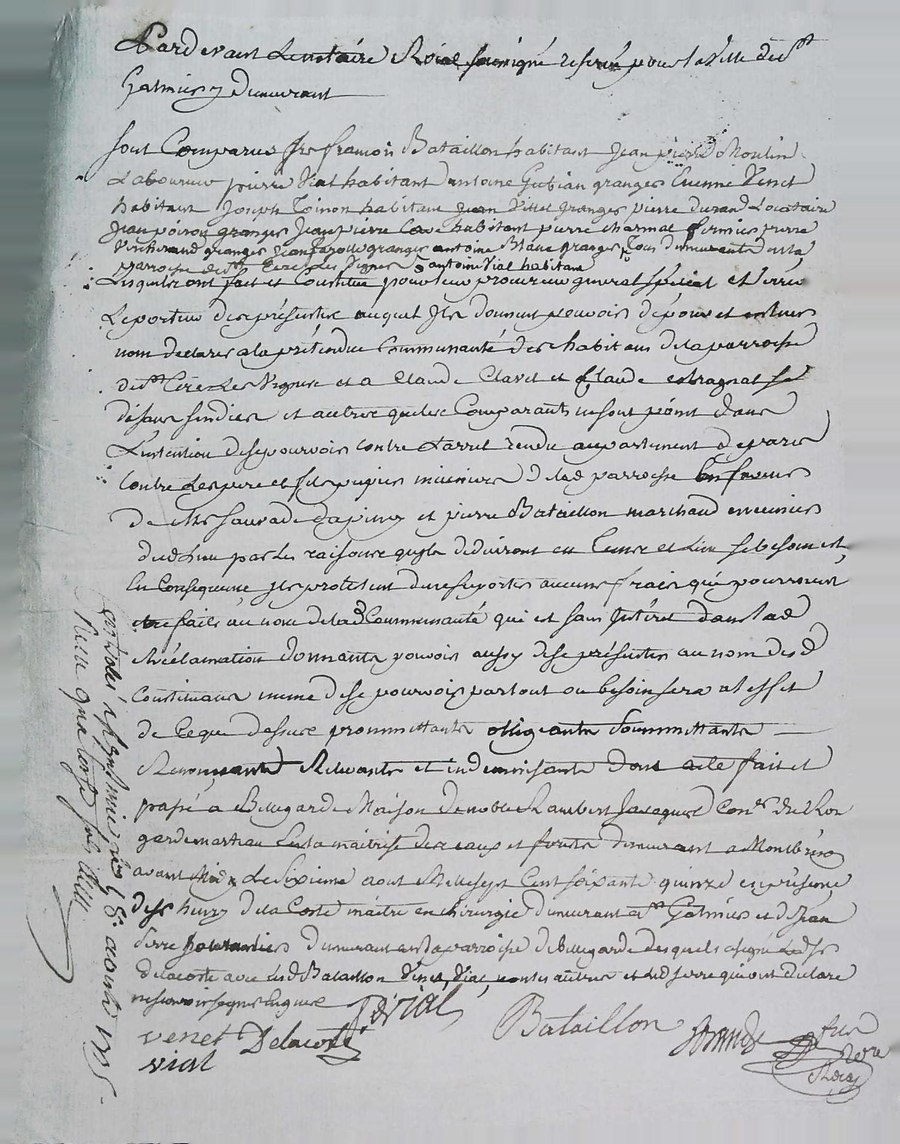 Pardevant Le notaire Roial soussigné reservé pour la ville de st
Galmier y demeurant
sont Comparus sr françois Bataillon habitant Jean pierre Moulin
Laboureur pierre Vial habitant antoine Gubian granger Etienne Venet
habitant Joseph Toinon habitant Jean Villet granger pierre durand Locataire
Jean poiron granger Jean pierre habitant pierre charmat fermier pierre
granger Jean granger antoine Blanc granger Tous demeurants en la
parroisse de st Cire Les Vignes & antoine Vial habitant
Lesquels ont fait et Constitué pour leur procureur general spécial et
Le porteur des présentes auquel Ils donnent pouvoir de pour et en leurs
nom declarer a la prétendue Communauté des habitans de la parroisse
de st Cire Les Vignes et a Claude Clavel et Claude estragnat se
disans sindics et autres que les Comparants ne sont point dans
L'intention de se pourvoir contre L'arret rendu au parlement de paris
contre Les pere et fils pupier meuniers de lad parroisse En faveur
de Mr Sauvade et pierre Bataillon marchand meunier
dud Lieu par les raisons qu'ils déduiront en Tems et Lieu se besoin est,
En Consequence Ils protestent de ne suporter aucuns frais qui pourroient
etre faits au nom de lad Communauté qui est sans Intéret dans lad
Réclamation donnants pouvoir aussy de se présenter au nom desd
Constituans meme de se pourvoir partout ou besoin sera a l'effet
de Ce que dessus prommittants obligeants soummittants
Renonçants Relevants et indemnisants dont acte fait et
passé a Bellegarde Maison de noble Rambert Jacques Coner du Roi
garde marteau En la maitrise des eaux et forets demeurant a Montbrison
avant Midy Le sixieme aout Mille sept Cent soixante quinze en présence
de sr henry de la Coste maitre en chirurgie demeurant a st Galmier et de Jean
Serre demeurant en la parroisse de Bellegarde desquels a signé Led sr
delacoste avec Lesd Bataillon Venet, Vial, non les autres et led serre qui ont déclaré
ne scavoir signer Enquis
P. Vial
Bataillon
venet Delacoste
vial
notre
Roial
Controlé a st galmier le 18 aout 1775
Reçu quatorze sols